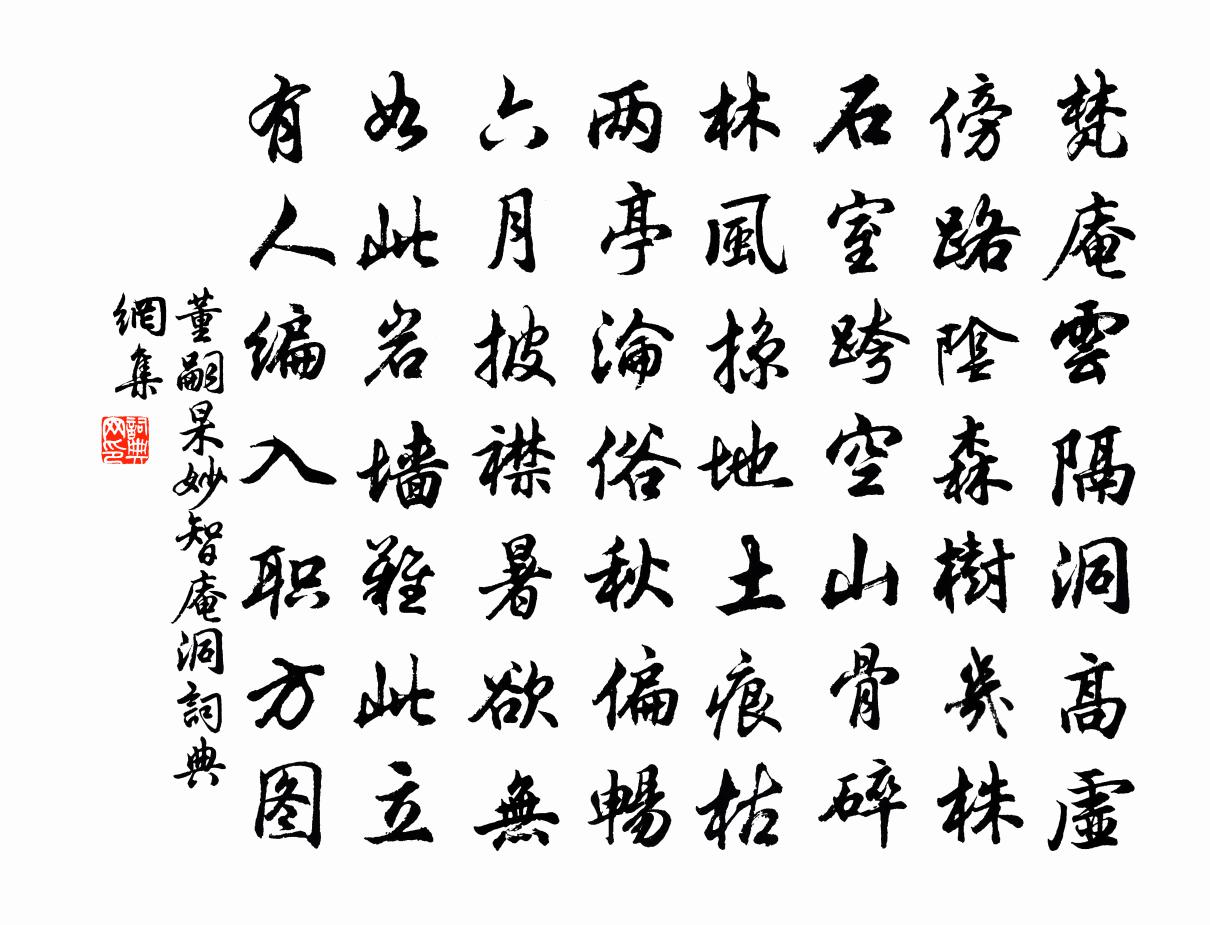 梵庵雲隔洞高虛
傍路陰森樹幾株
石室跨空山骨碎
林風掠地土痕枯
两亭淪俗秋偏暢
六月披襟暑欲無
如此岩墙難此立
有人编入职方图
董嗣杲妙智庵洞詞典
網集
詞典网印